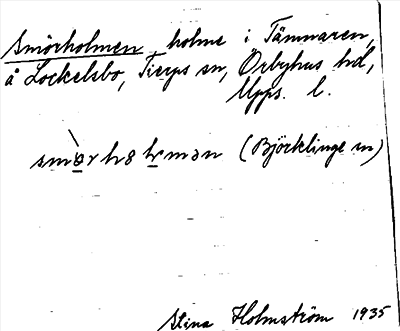 Smörholmen, holme i Tämnaren,
å Lockelsbo, Tierps sn, Örbyhus hd,
Upps. l.
(Björklinge sn)
Stina Holmström 1935